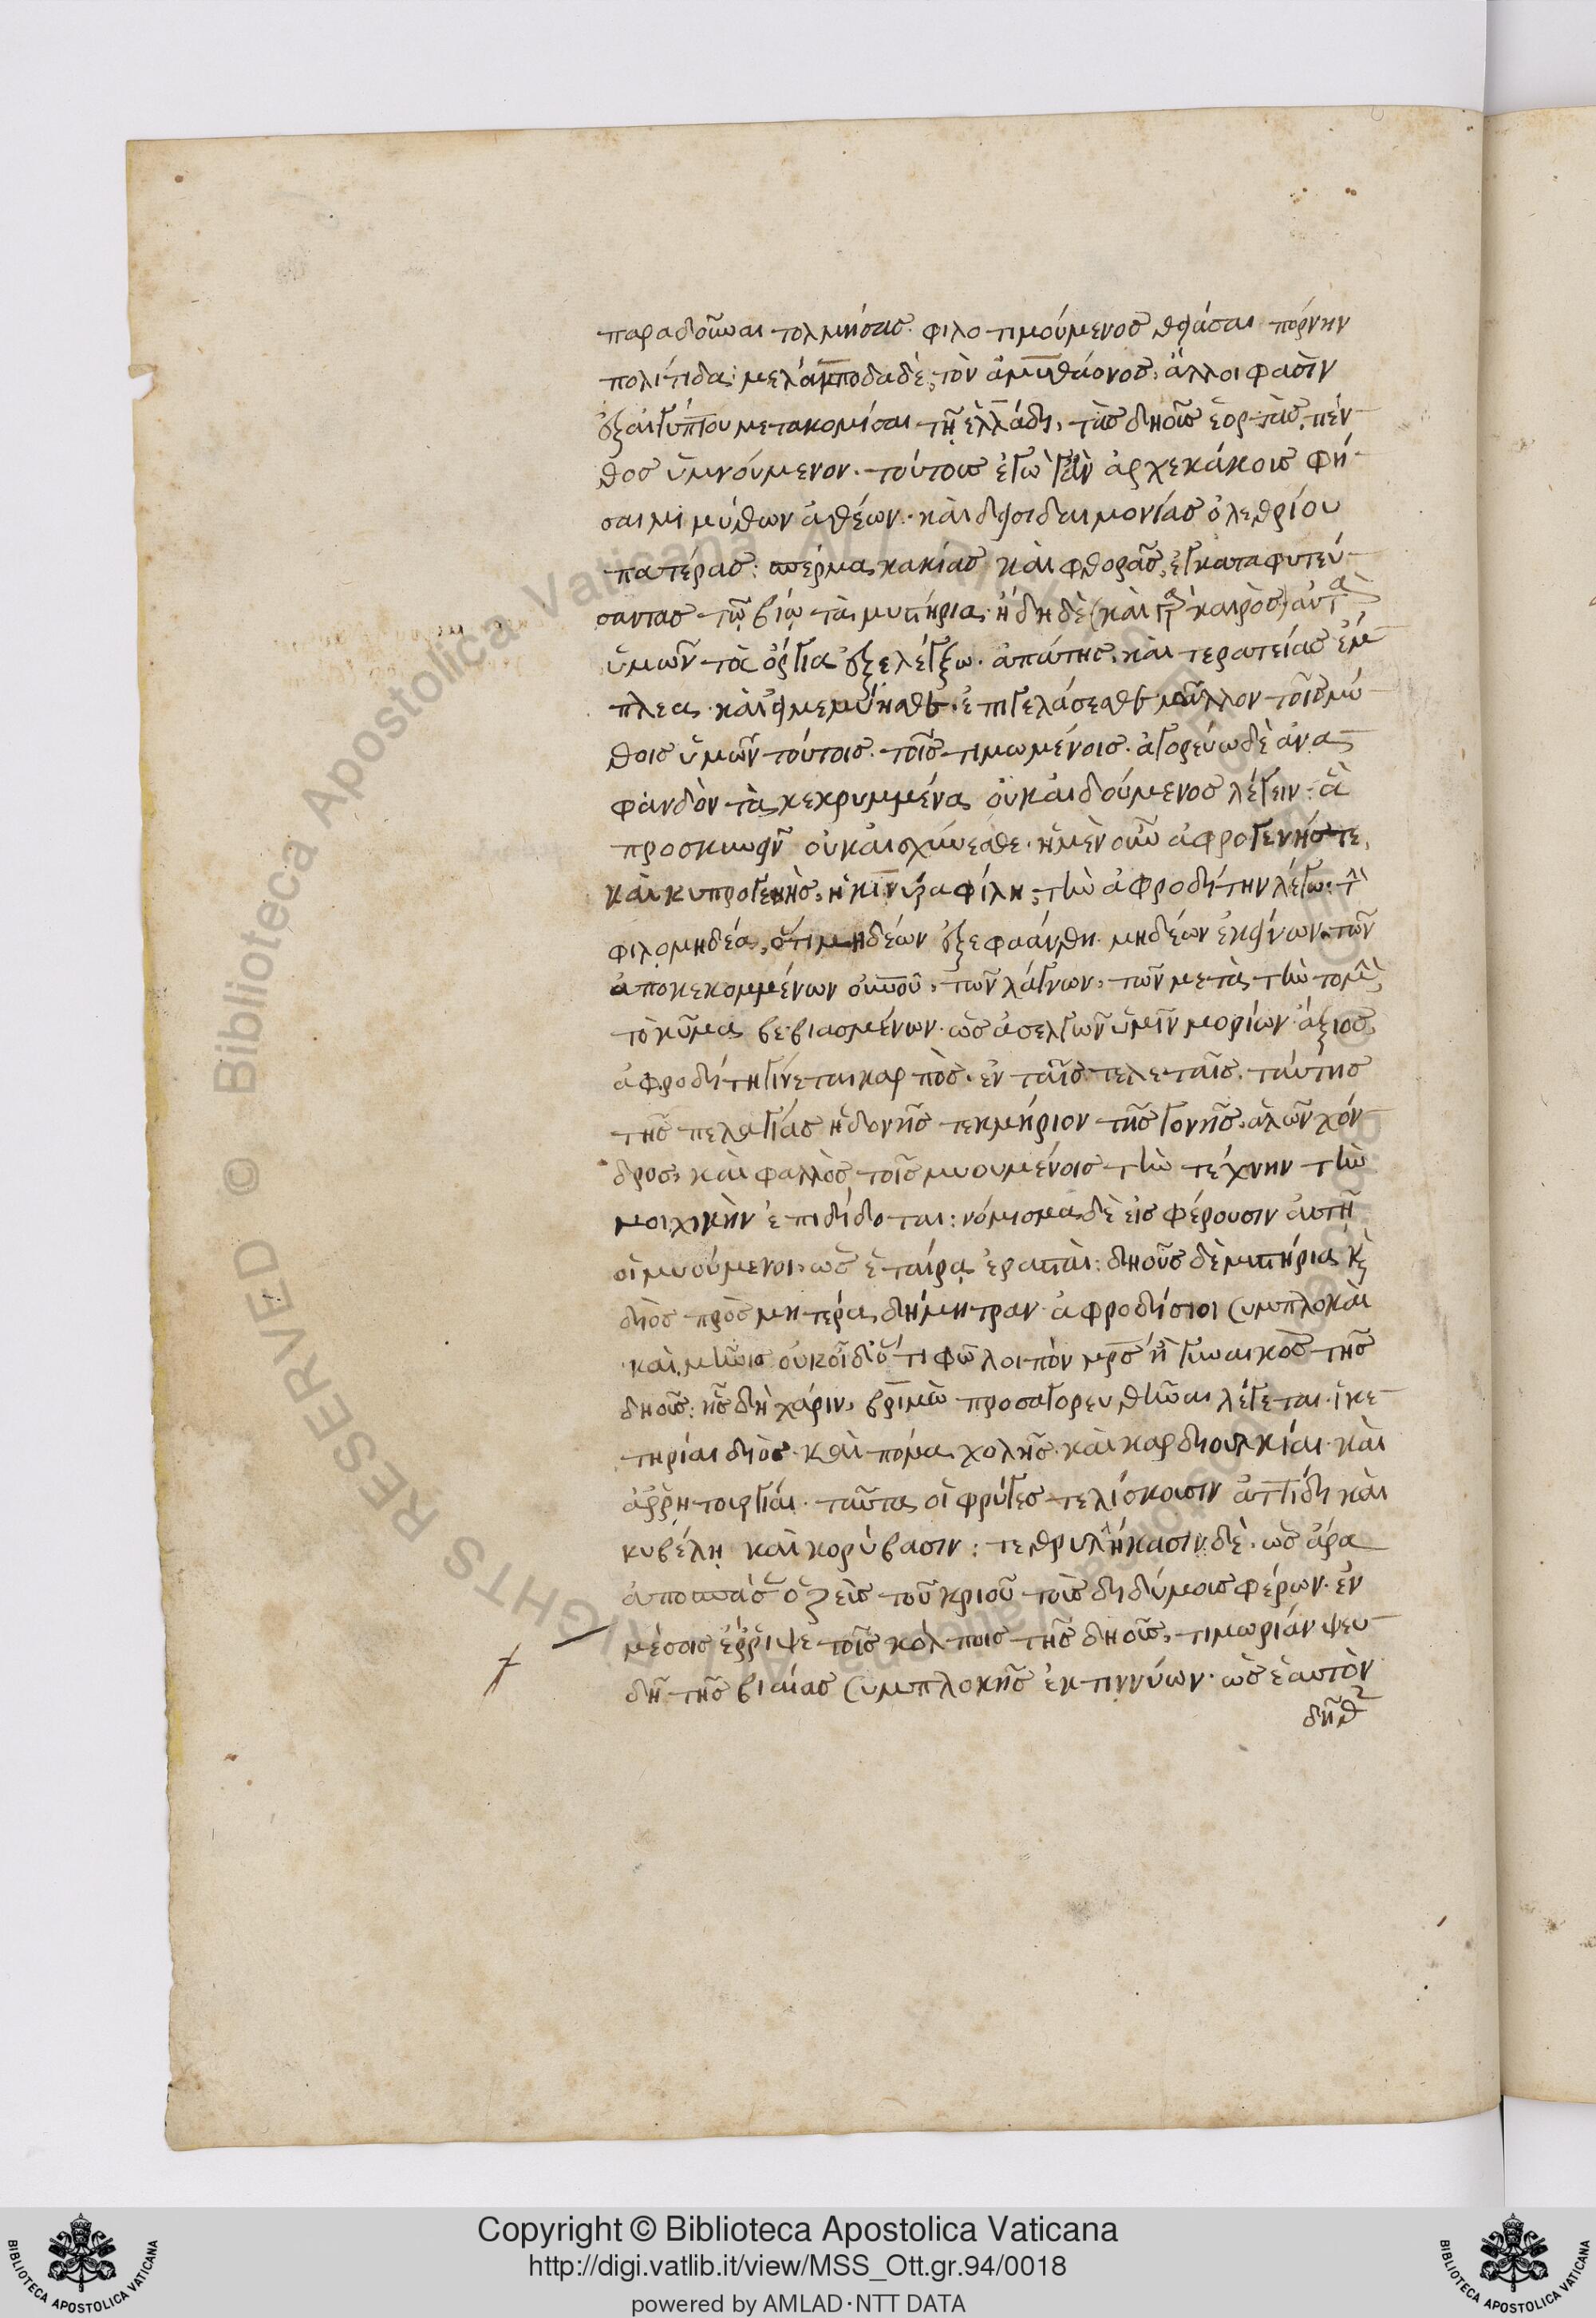 παραδοῦναι τολμήσας· φιλοτιμούμενος θειάσαι πόρνην
πολίτιδα: μελάμποδα δὲ, τὸν ἀμυθάονος, ἄλλοι φασὶν
ἐξ αἰγύπτου μετακομίσαι τῇ ἑλλάδι, τὰς δηοῦς ἑορτὰς, πέν-
θος ὑμνούμενον· τούτους ἐγὼ γ' ἂν ἀρχεκάκους φή-
σαιμι μύθων ἀθέων· καὶ δεισιδαιμονίας ὀλεθρίου
πατέρας: σπέρμα κακίας καὶ φθορᾶς, ἐγκαταφυτεύ-
σαντας τῷ βίῳ τὰ μυστήρια· ἤδη δὲ (καὶ γὰρ καιρὸς) αὐτὰ
ὑμῶν τὰ ὄργια ἐξελέγξω· ἀπάτης, καὶ τερατείας ἔμ-
πλεα· καὶ εἰ μεμύησθε· ἐπιγελάσεσθε μᾶλλον τοῖς μύ-
θοις ὑμῶν τούτοις· τοῖς τιμωμένοις· ἀγορεύω δὲ ἀνα-
φανδὸν τὰ κεκρυμμένα οὐκ αἰδούμενος λέγειν: ἃ
προσκυνεῖν οὐκ αἰσχύνεσθε· ἡ μὲν οὖν ἀφρογενής τε,
καὶ κυπρογενὴς, ἡ κινύρα φίλη, τὴν ἀφροδίτην λέγω· τὴν
φιλομηδέα, ὅτι μηδέων ἐξεφαάνθη· μηδέων ἐκείνων, τῶν
ἀποκεκομμένων οὐρανοῦ, τῶν λάγνων, τῶν μετὰ τὴν τομὴν
τὸ κῦμα βεβιασμένων· ὡς ἀσελγῶν ὑμῖν μορίων ἄξιος
ἀφροδίτη γίνεται καρπὸς· ἐν ταῖς τελεταῖς· ταύτης
τῆς πελαγίας ἡδονῆς τεκμήριον τῆς γονῆς, ἁλῶν χόν-
δρος, καὶ φαλλὸς τοῖς μυουμένοις τὴν τέχνην τὴν
μοιχικὴν ἐπιδίδοται: νόμισμα δὲ εἰσφέρουσιν αὐτῇ
οἱ μυούμενοι, ὡς ἑταίρᾳ ἐρασταὶ: δηοῦς δὲ μυστήρια καὶ
διὸς πρὸς μητέρα δήμητραν· ἀφροδίσιοι συμπλοκαὶ
καὶ μῆνις οὐκ οἶδ' ὅ τι φῶ λοιπὸν μητρὸς ἢ γυναικὸς τῆς
δηοῦς: ἧς δὴ χάριν, βριμὼ προσαγορευθῆναι λέγεται· ἱκε-
τηρίαι διὸς· καὶ πόμα χολῆς· καὶ καρδιουλκίαι· καὶ
ἀρρητουργίαι· ταῦτα οἱ φρύγες τελίσκουσιν ἄττιδι καὶ
κυβέλῃ καὶ κορύβασιν: τεθρυλήκασιν δὲ· ὡς ἄρα
ἀποσπάσας ὁ ζεὺς τοῦ κριοῦ τοὺς διδύμους φέρων· ἐν
μέσοις ἔρριψε τοῖς κόλποις τῆς δηοῦς, τιμωρίαν ψευ-
δῆ τῆς βιαίας συμπλοκῆς ἐκτιννύων· ὡς ἑαυτὸν
δῆθεν
Copyright © Biblioteca Apostolica Vaticana
http://digi.vatlib.it/view/MSS_Ott.gr.94/0018
powered by AMLAD·NTT DATA